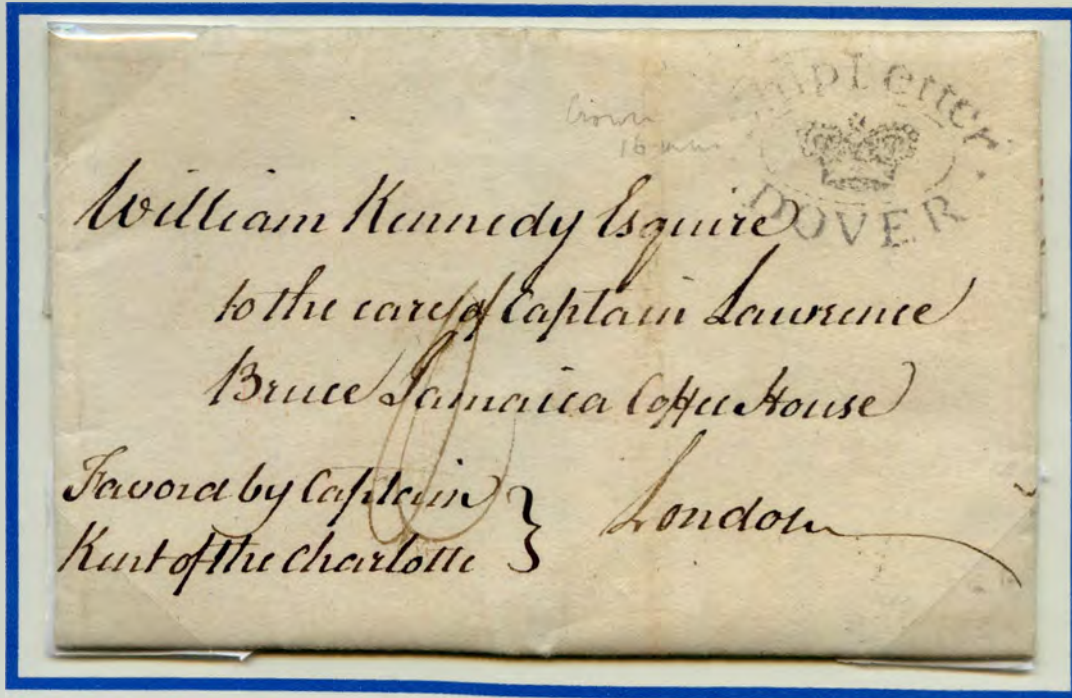 Ship Letter
DOVER
Crown
16 mm
William Kennedy Esquire
to the care of Captain Lawrence
Bruce Jamaica Coffee House
London
Favord by Captain
Kent of the Charlotte